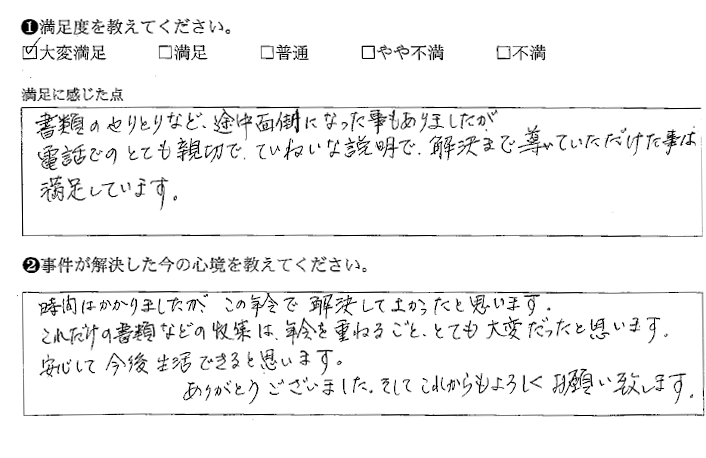 ❶満足度を教えてください。
☑大変満足 □満足 □普通 □やや不満 □不満
満足に感じた点
書類のやりとりなど、途中面倒になった事もありましたが
電話でのとても親切で、ていねいな説明で、解決まで導いていただけた事は
満足しています。
❷事件が解決した今の心境を教えてください。
時間はかかりましたが、この年令で解決して良かったと思います。
これだけの書類などの収集は、年令を重ねるごと、とても大変だったと思います。
安心して今後生活できると思います。
ありがとうございました。そしてこれからもよろしくお願い致します。